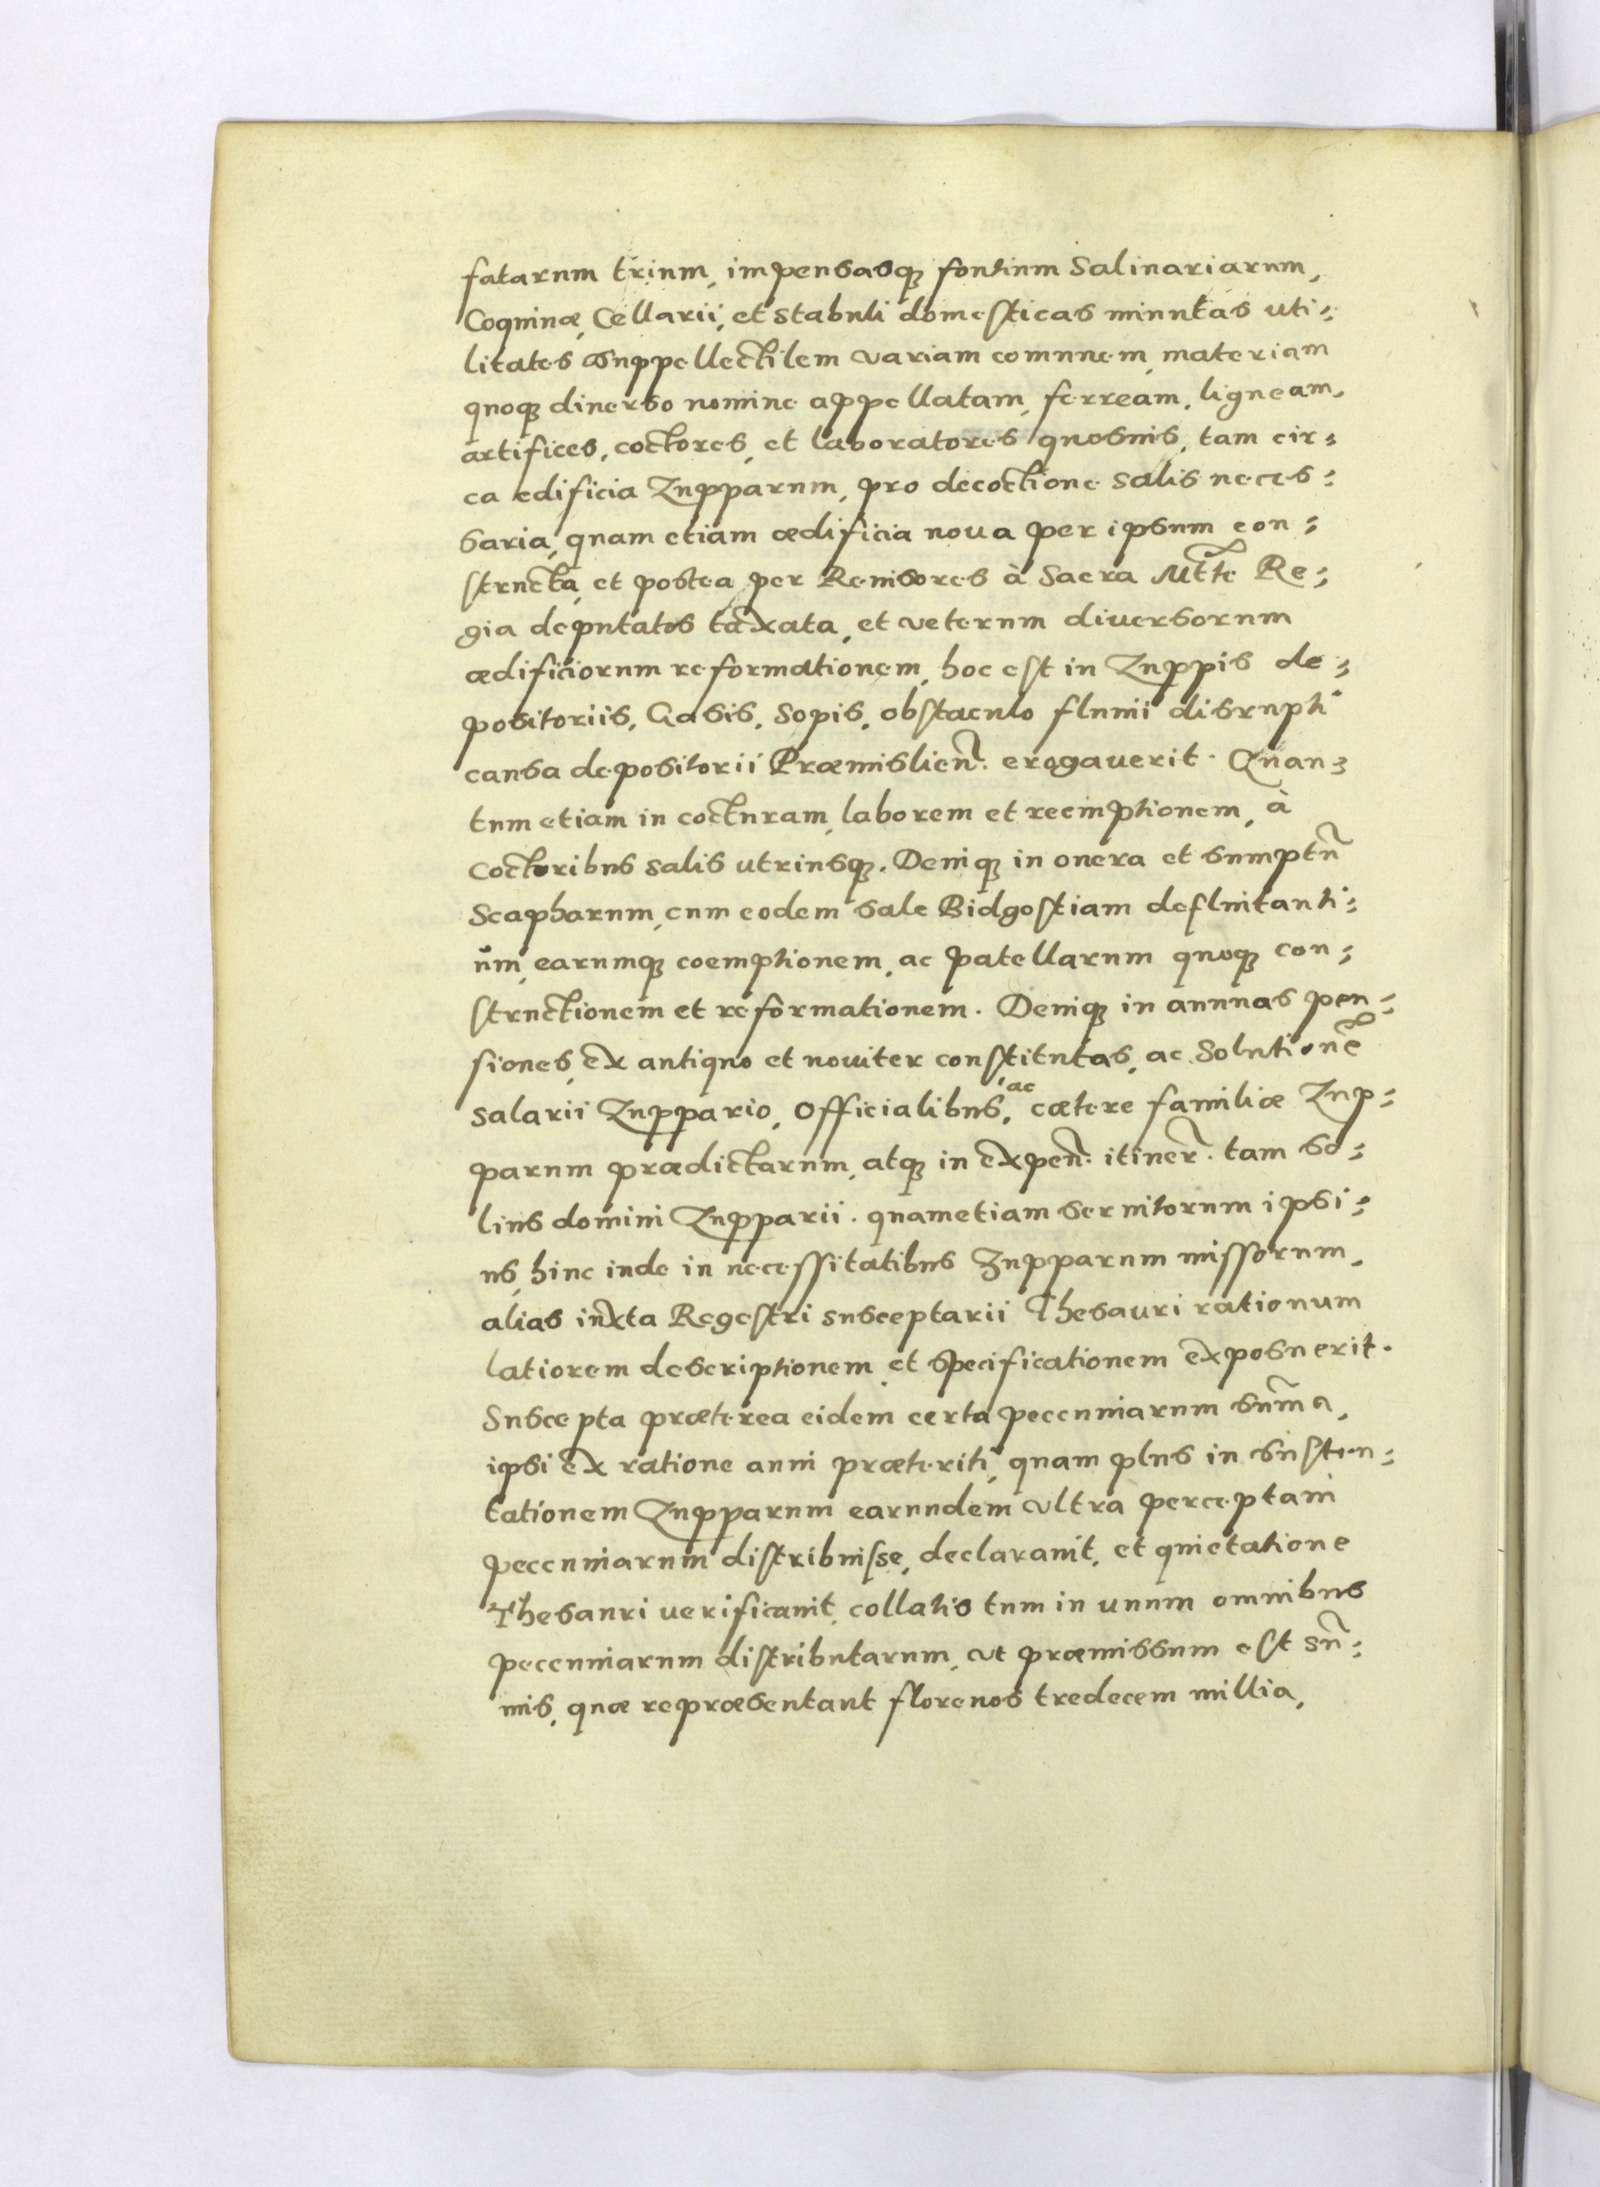 fatarum trium, impensasq; fontium Salinariarum,
Coquinæ, Cellarii, et stabuli domesticas minutas uti=
litates suppellectilem variam comunem, materiam
quoq; diuerso nomine appellatam, ferream, ligneam,
artifices, coctores, et laboratores quosuis, tam cir=
ca edificia Zupparum, pro decoctione salis neces=
saria, quam etiam ædificia noua per ipsum con=
structa, et postea per Reuisores à Sacra Mtte Re=
gia deputatos taxata, et veterum diuersorum
ædificiorum reformationem, hoc est in Zuppis de=
positoriis, Gasis, Sopis, obstaculo fluuii disrupti
causa depositorii Præmislien̄. erogauerit. Quan=
tum etiam in cocturam, laborem et reemptionem, à
Coctoribus salis utriusq;. Deniq; in onera et sumptū
Scapharum, cum eodem sale Bidgostiam defluitanti=
um, earumq; coemptionem, ac patellarum quoq; con=
structionem et reformationem. Deniq; in annuas pen=
siones, ex antiquo et nouiter constitutas, ac solutionē
salarii Zuppario, Officialibus, ac cætere familiæ Zup=
parum prædictarum, atq; in expen̄. itiner̄. tam so=
lius domini Zupparii. quametiam seruitorum ipsi=
us, hinc inde in necessitatibus Zupparum missorum,
alias iuxta Regestri susceptarii Thesauri rationum
latiorem descriptionem et specificationem exposuerit.
Suscepta præterea eidem certa pecuniarum sūma,
ipsi ex ratione anni præteriti, quam plus in susten=
tationem Zupparum earundem ultra perceptam
pecuniarum distribuisse, declarauit, et quietatione
Thesauri uerificauit, collatis tum in unum omnibus
pecuniarum distributarum, ut præmissum est sū=
mis, quæ repræsentant florenos tredecem millia,